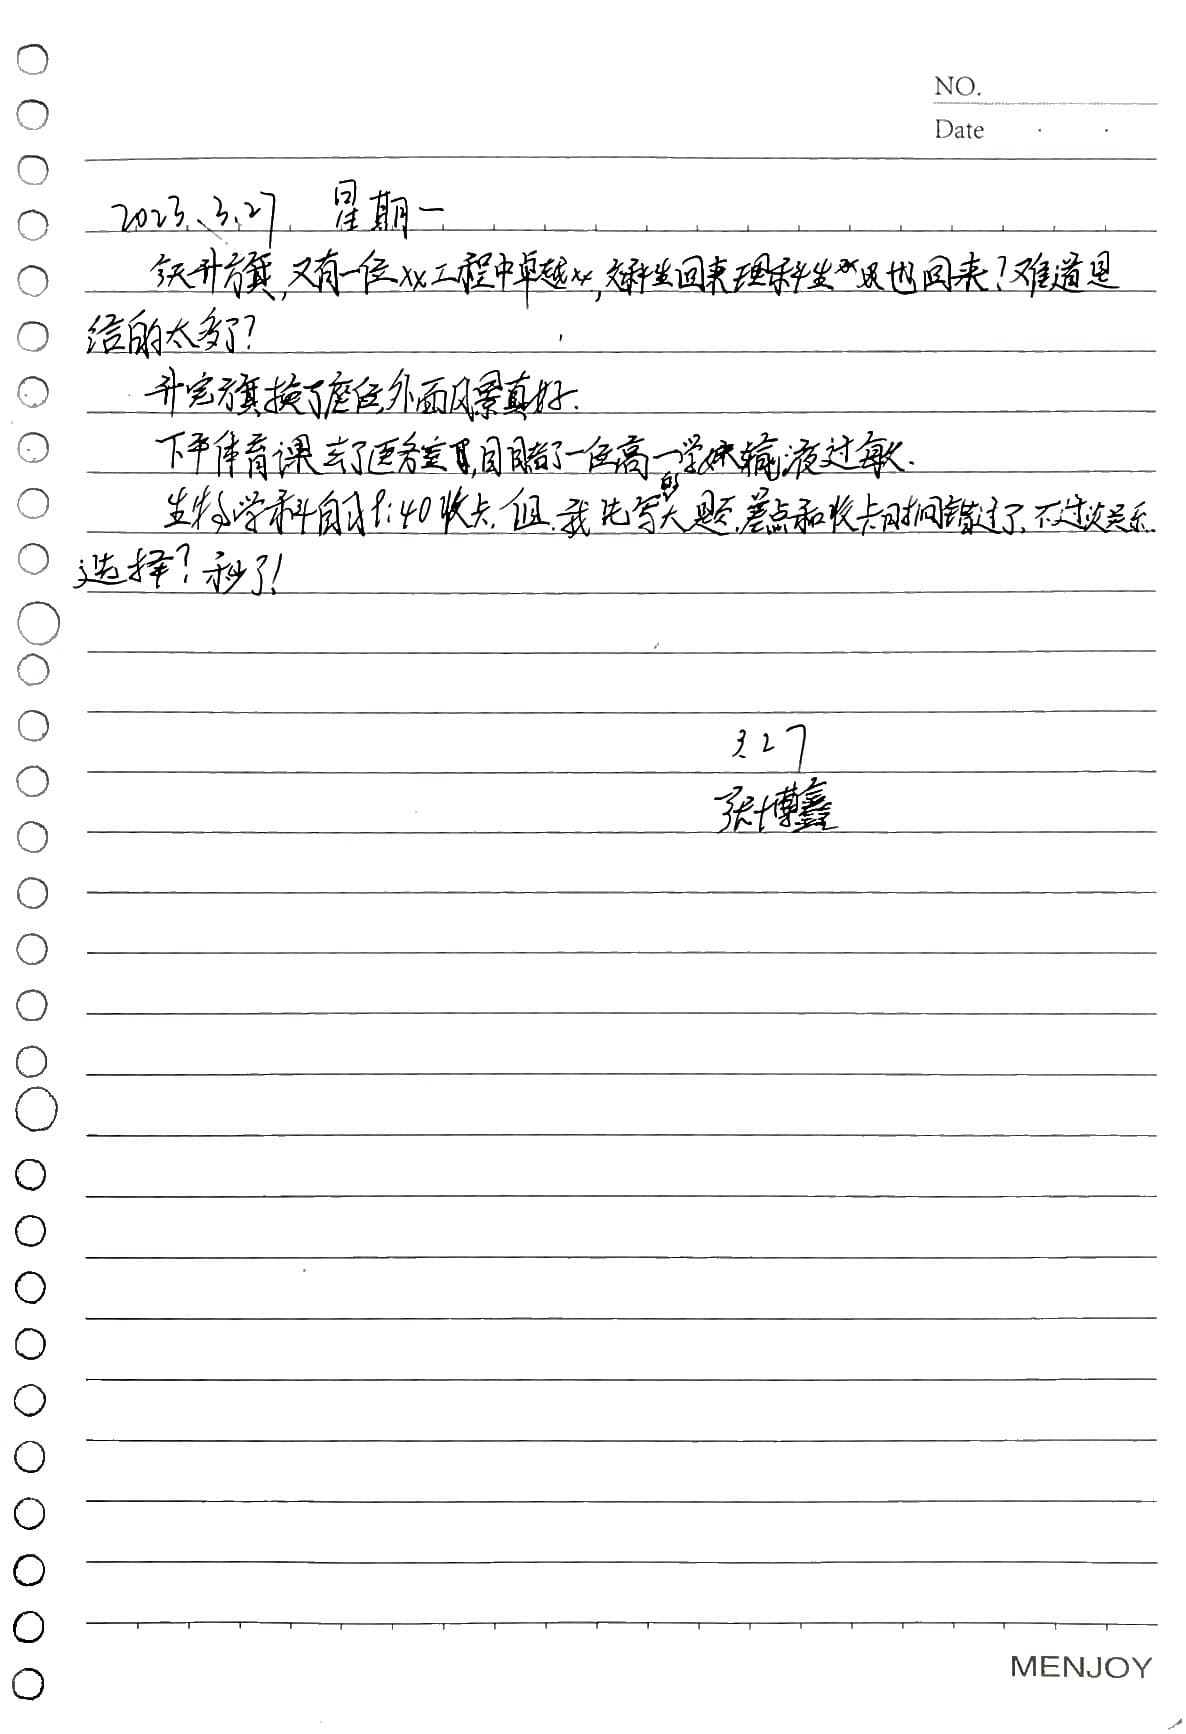 NO.
Date
2023.3.27 星期一
今天升旗,又有一位xx工程中卓越xx,文科生回来理科生也回来?难道是
给的太多了?
升完旗换了座位外面风景真好.
下午体育课去了医务室,目睹了一位高一学妹输液过敏.
生物学科自习9:40收卡,但.我先写的大题.差点和收卡时间错过了.不过没关系
选择?秒了!
3.27
张博鑫
MENJOY